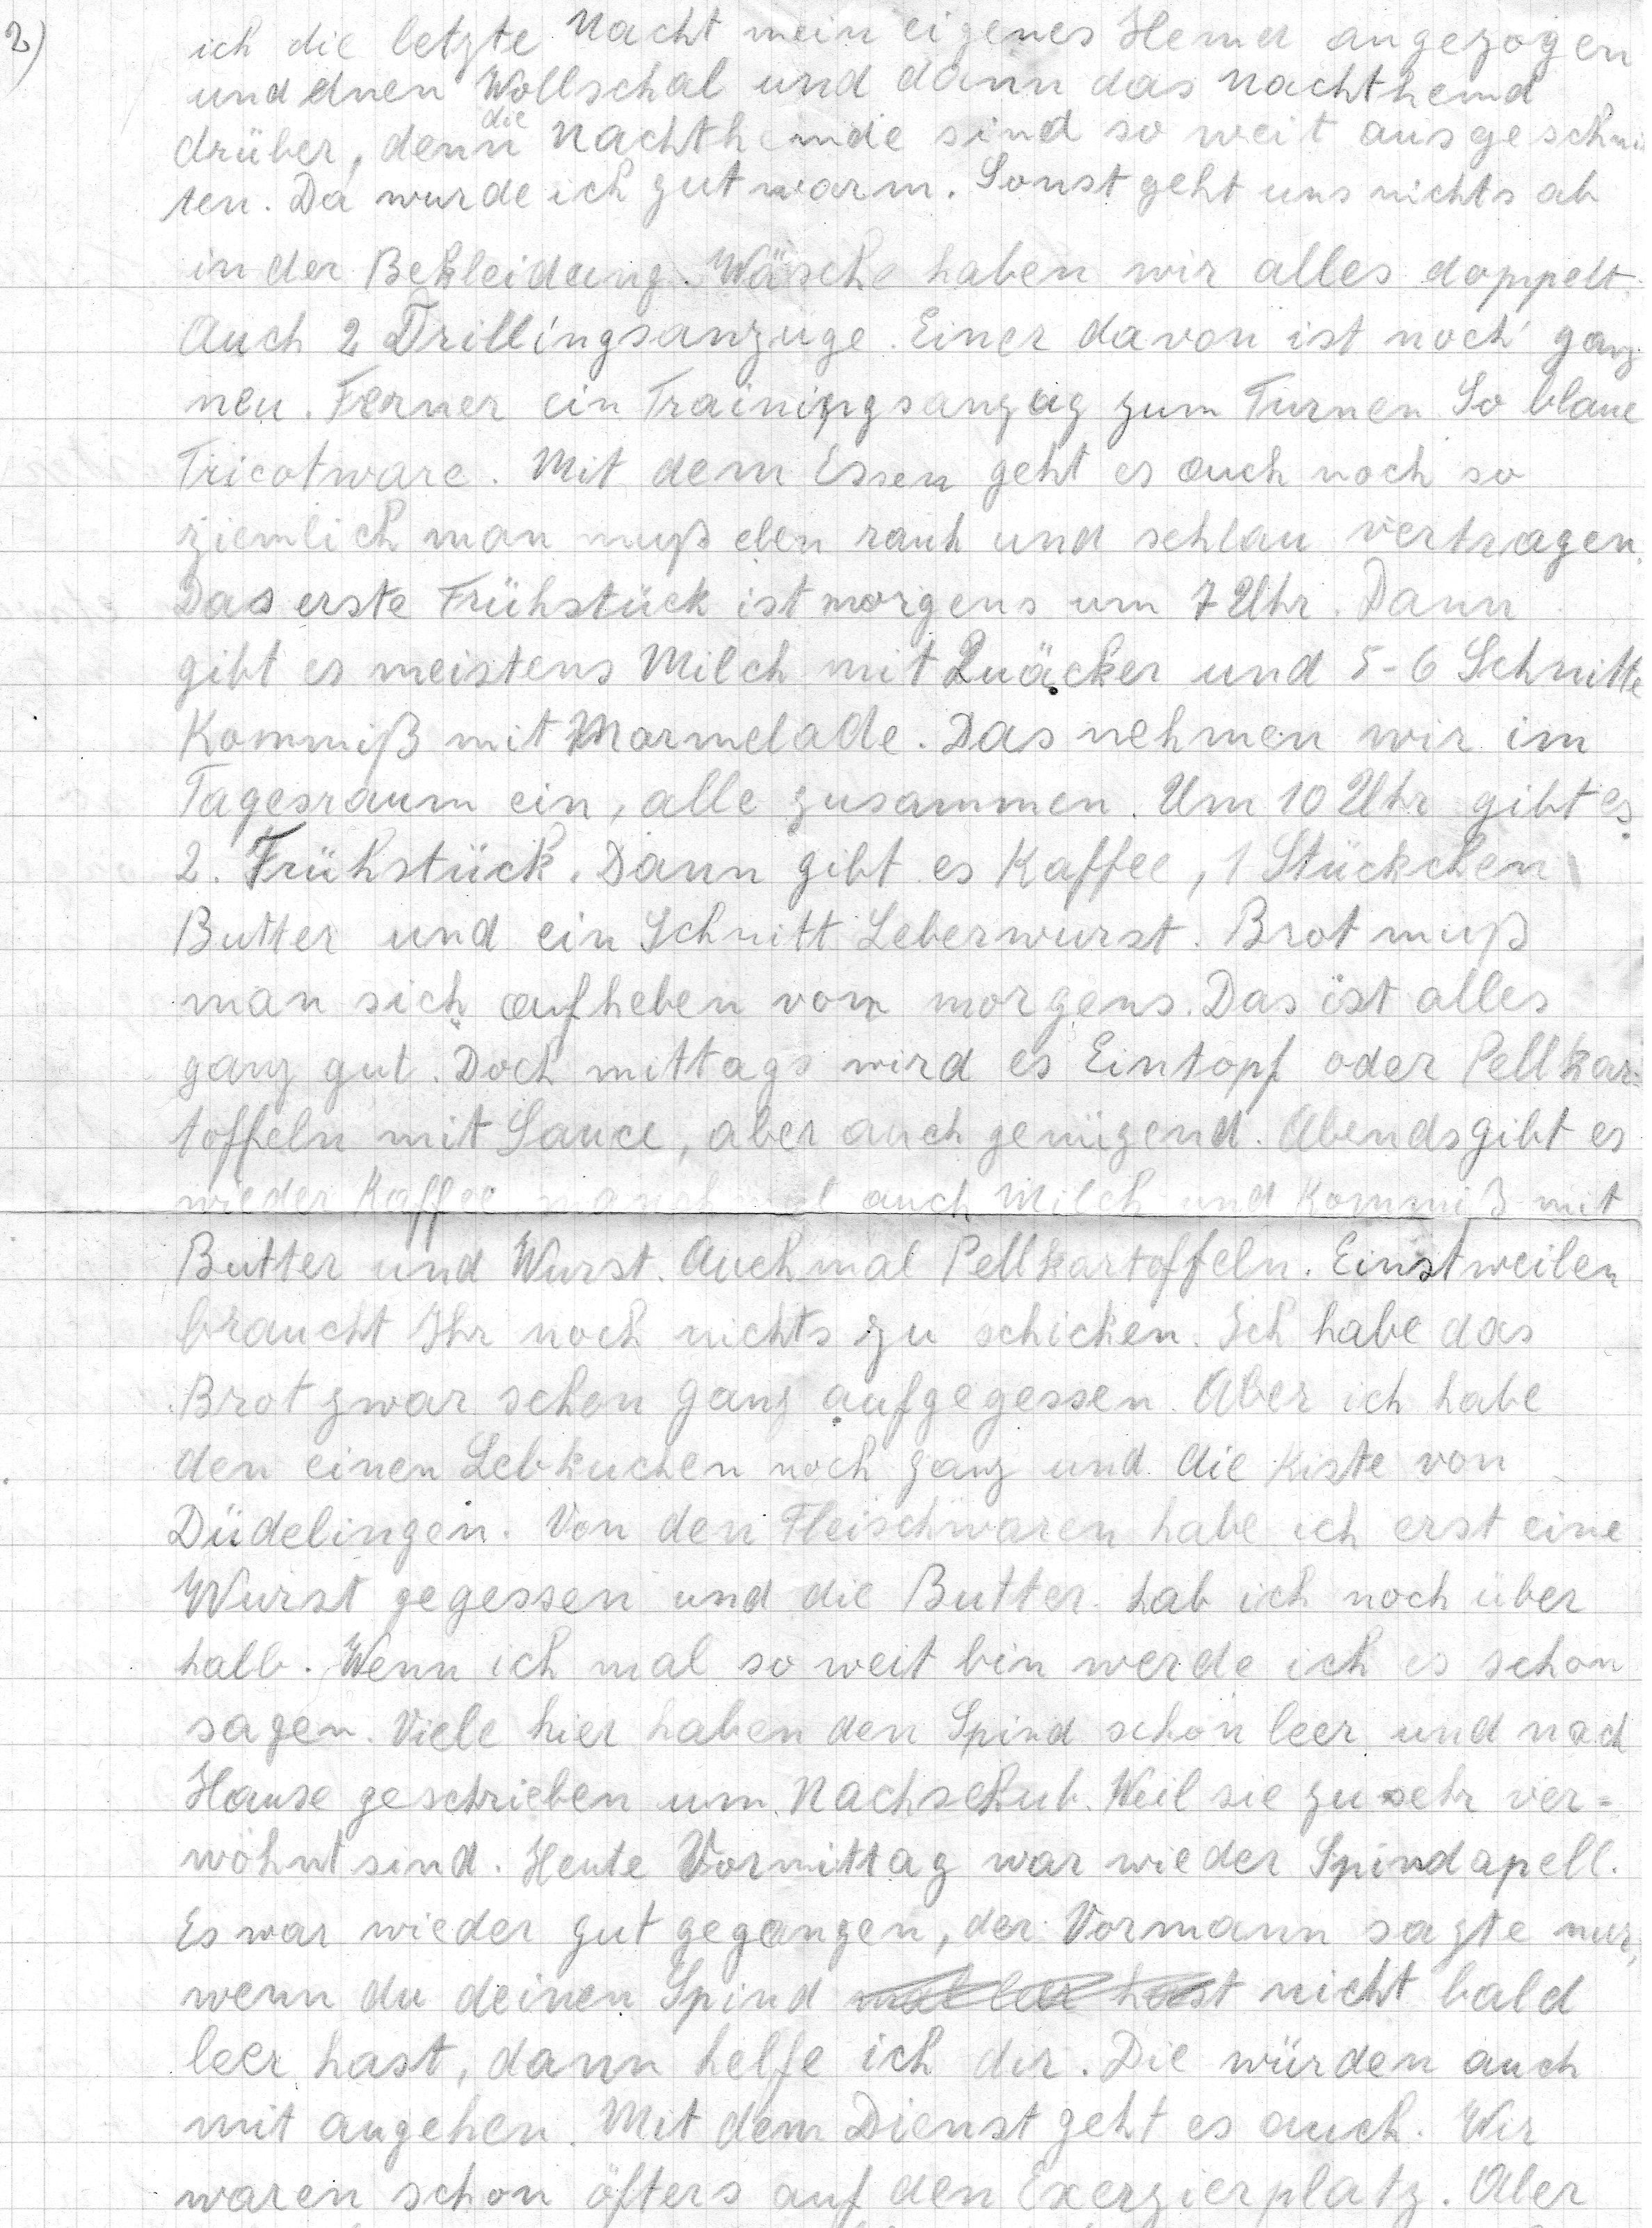 2)
ich die letzte Nacht mein eigenes Hemd angezogen
und einen Wollschal und dann das Nachthemd
drüber, denn die Nachthemde sind so weit ausgeschnit
ten. Da wurde ich gut warm. Sonst geht uns nichts ab
in der Bekleidung. Wäsche haben wir alles doppelt.
Auch 2 Drillingsanzüge. Einer davon ist noch ganz
neu. Ferner ein Trainingsanzug zum Turnen. So blaue
Tricotware. Mit dem Essen geht es auch noch so
ziemlich man muß eben rauh und schlau vertragen.
Das erste Frühstück ist morgens um 7 Uhr. Dann
gibt es meistens Milch mit Quäcker und 5-6 Schnitte
Kommiß mit Marmelade. Das nehmen wir im
Tagesraum ein, alle zusammen. Um 10 Uhr gibt es
2. Frühstück. Dann gibt es Kaffee, 1 Stückchen
Butter und ein Schnitt Leberwurst. Brot muß
man sich aufheben von morgens. Das ist alles
ganz gut. Doch mittags wird es Eintopf oder Pellkar-
toffeln mit Sauce, aber auch genügend. Abends gibt es
wieder Kaffee manchmal auch Milch und Kommiß mit
Butter und Wurst. Auch mal Pellkartoffeln. Einstweilen
braucht Ihr noch nichts zu schicken. Ich habe das
Brot zwar schon ganz aufgegessen. Aber ich habe
den einen Lebkuchen noch ganz und die Kiste von
Düdelingen. Von den Fleischwaren habe ich erst eine
Wurst gegessen und die Butter hab ich noch über
halb. Wenn ich mal so weit bin werde ich es schon
sagen. Viele hier haben den Spind schon leer und nach
Hause geschrieben um Nachschub. Weil sie zu sehr ver=
wöhnt sind. Heute Vormittag war wieder Spindapell.
Es war wieder gut gegangen, der Vormann sagte nur,
wenn du deinen Spind mal leer hast nicht bald
leer hast, dann helfe ich dir. Die würden auch
mit angehen. Mit dem Dienst geht es auch. Wir
waren schon öfters auf den Exerzierplatz. Aber